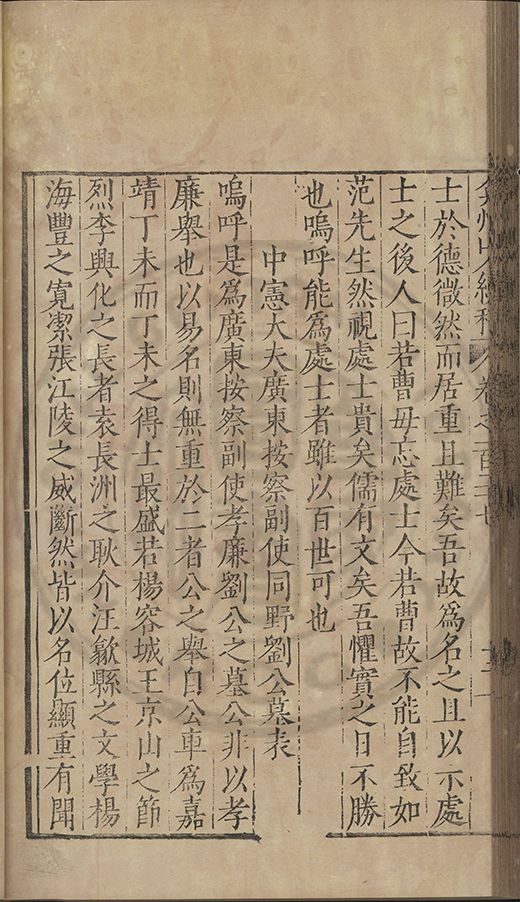 弇州山人續稿 卷之一百三十七 十二
士於德微然而居重且難矣吾故為名之且以示處
士之後人曰若曹毋忘處士今若曹故不能自致如
范先生然視處士貴矣儒有文矣吾懼實之日不勝
也嗚呼能為處士者雖以百世可也
中憲大夫廣東按察副使同野劉公墓表
嗚呼是為廣東按察副使孝廉劉公之墓公非以孝
廉舉也以易名則無重於二者公之舉自公車為嘉
靖丁未而丁未之得士最盛若楊容城王京山之節
烈李興化之長者袁長洲之耿介汪歙縣之文學楊
海豐之寬潔張江陵之威斷然皆以名位顯重有聞